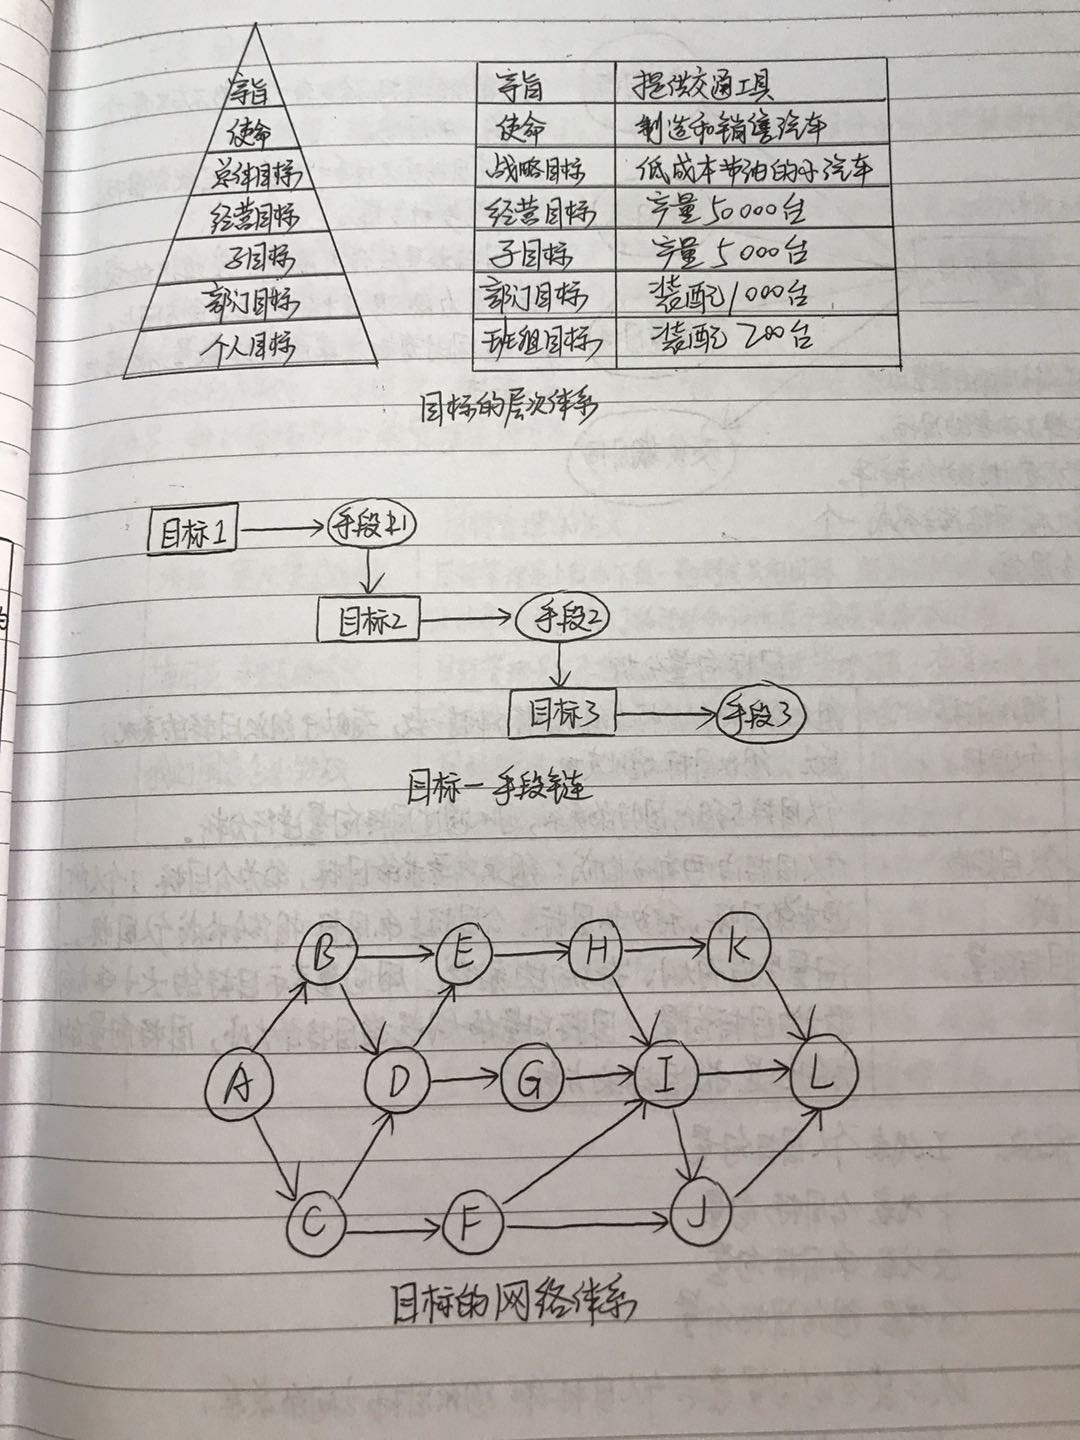 宗旨
使命
总体目标
经营目标
子目标
部门目标
个人目标
宗旨 提供交通工具
使命 制造和销售汽车
战略目标 低成本节油的小汽车
经营目标 产量50000台
子目标 产量5000台
部门目标 装配1000台
班组目标 装配200台
目标的层次体系
目标1 手段1
目标2 手段2
目标3 手段3
目标一手段链
B E H K
A D G I L
C F J
目标的网络体系